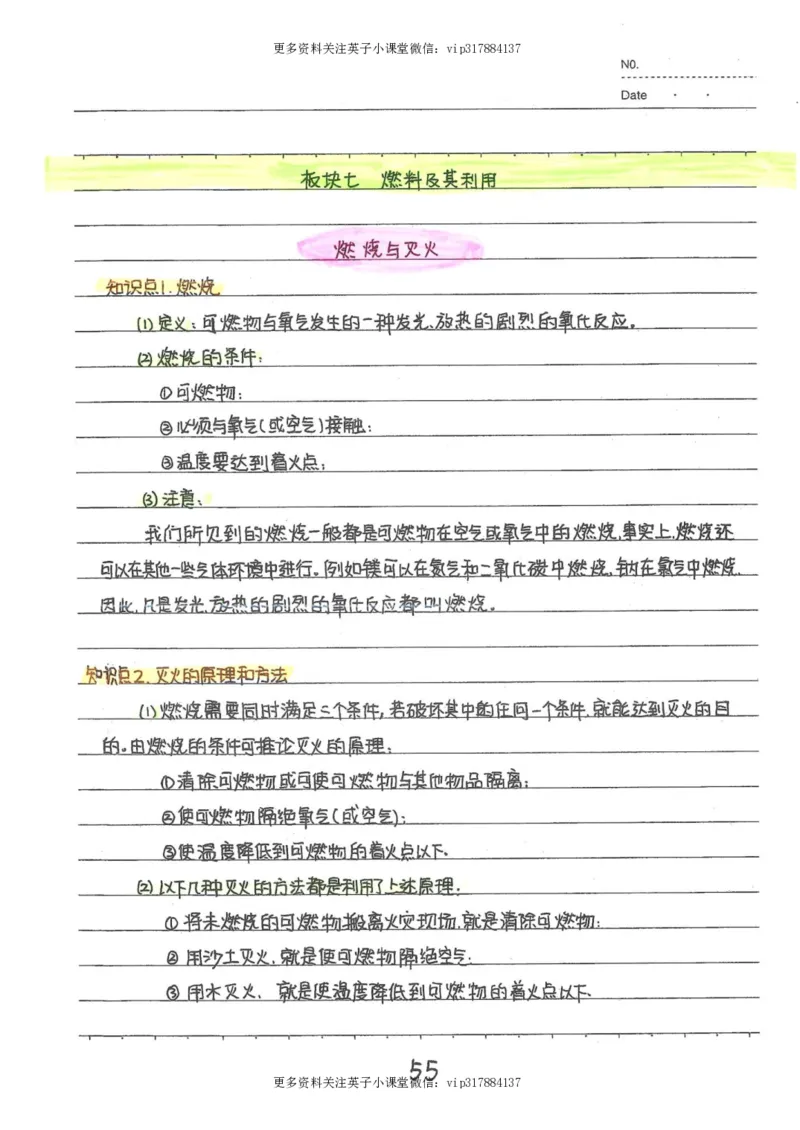 更多资料关注英子小课堂微信：vip317884137
NO.
Date
板块七 燃料及其利用
燃烧与灭火
知识点1.燃烧
(1)定义：可燃物与氧气发生的一种发光、放热的剧烈的氧化反应。
(2)燃烧的条件：
①可燃物；
②必须与氧气(或空气)接触；
③温度要达到着火点；
(3)注意、
我们所见到的燃烧一般都是可燃物在空气或氧气中的燃烧,事实上,燃烧还
可以在其他一些气体环境中进行。例如镁可以在氮气和二氧化碳中燃烧,钠在氯气中燃烧.
因此,凡是发光、放热的剧烈的氧化反应都叫燃烧。
知识点2.灭火的原理和方法
(1)燃烧需要同时满足三个条件,若破坏其中的任何一个条件,就能达到灭火的目
的。由燃烧的条件可推论灭火的原理；
①清除可燃物或可使可燃物与其他物品隔离；
②使可燃物隔绝氧气(或空气)；
③使温度降低到可燃物的着火点以下、
(2)以下几种灭火的方法都是利用了上述原理：
①将未燃烧的可燃物搬离火灾现场,就是清除可燃物；
②用沙土灭火,就是使可燃物隔绝空气；
③用水灭火, 就是使温度降低到可燃物的着火点以下、
55
更多资料关注英子小课堂微信：vip317884137